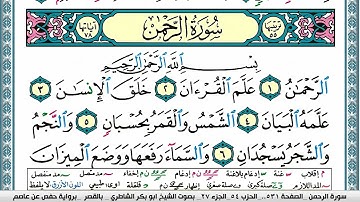 ترتيبها ٥٥ سُورَةُ الرَّحْمَٰن آياتها ٧٨
بِسْمِ ٱللَّهِ ٱلرَّحْمَٰنِ ٱلرَّحِيمِ
ٱلرَّحْمَٰنُ ١ عَلَّمَ ٱلْقُرْءَانَ ٢ خَلَقَ ٱلْإِنسَٰنَ ٣
عَلَّمَهُ ٱلْبَيَانَ ٤ ٱلشَّمْسُ وَٱلْقَمَرُ بِحُسْبَانٍ ٥ وَٱلنَّجْمُ
وَٱلشَّجَرُ يَسْجُدَانِ ٦ وَٱلسَّمَآءَ رَفَعَهَا وَوَضَعَ ٱلْمِيزَانَ
سورة الرحمن، الصفحة ٥٣١، الحزب ٥٤، الجزء ٢٧، بصوت الشيخ أبو بكر الشاطري، بالقصر، برواية حفص عن عاصم